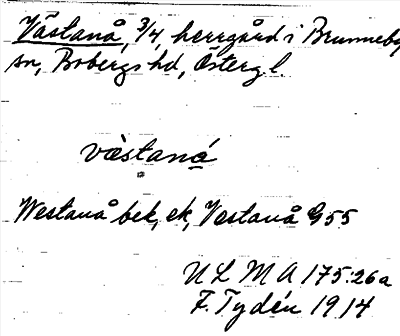 Västanå, 3/4, herrgård i Brunneby
sn, Bobergs hd, Östergl.
västanå
Westanå bek, ek, Vestanå G55
ULMA 175:26a
F. Tydén 1914